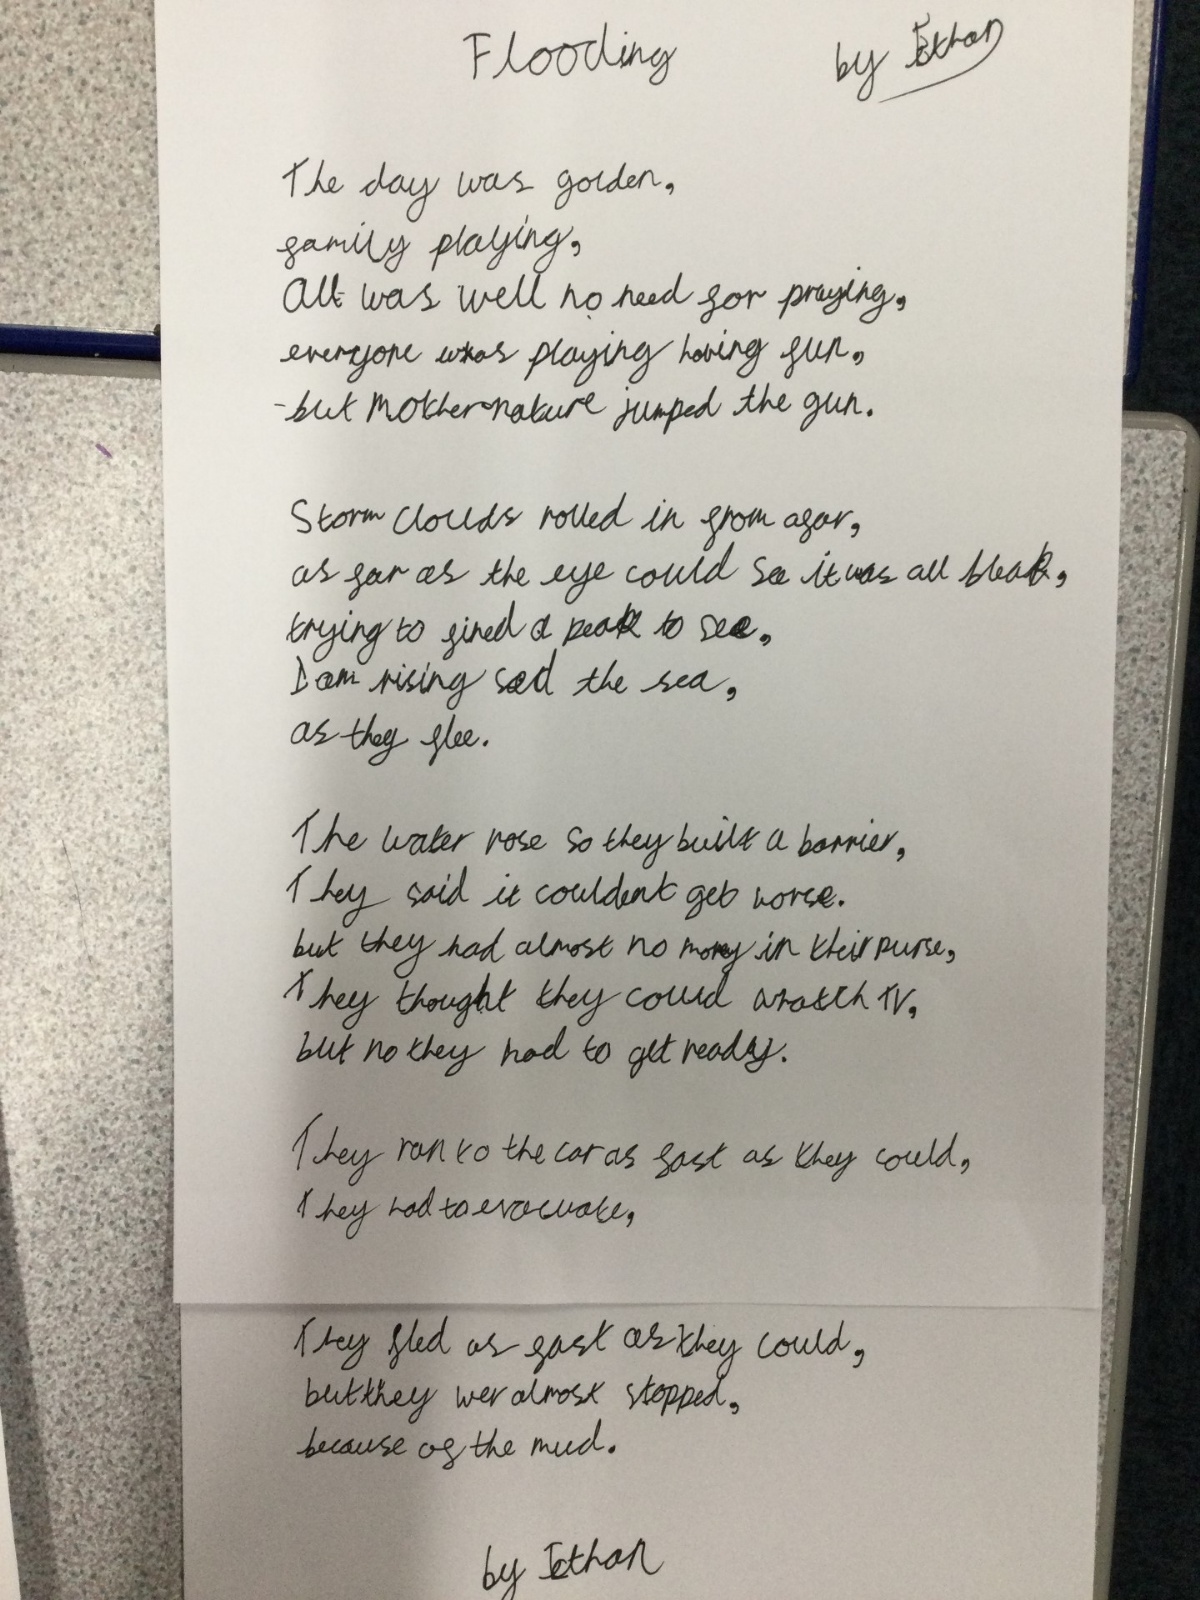 Flooding by Ethan
The day was golden,
family playing,
All was well no need for praying,
everyone was playing having fun,
-but Mother-nature jumped the gun.
Storm clouds rolled in from afar,
as far as the eye could see it was all bleak,
trying to fined a peak to see,
I am rising said the sea,
as they flee.
The water rose so they built a barrier,
They said it couldent get worse.
but they had almost no money in their purse,
They thought they could watch TV,
but no they had to get ready.
They ran to the car as fast as they could,
They had to evacuate,
They fled as fast as they could,
but they wer almost stopped,
because of the mud.
by Ethan